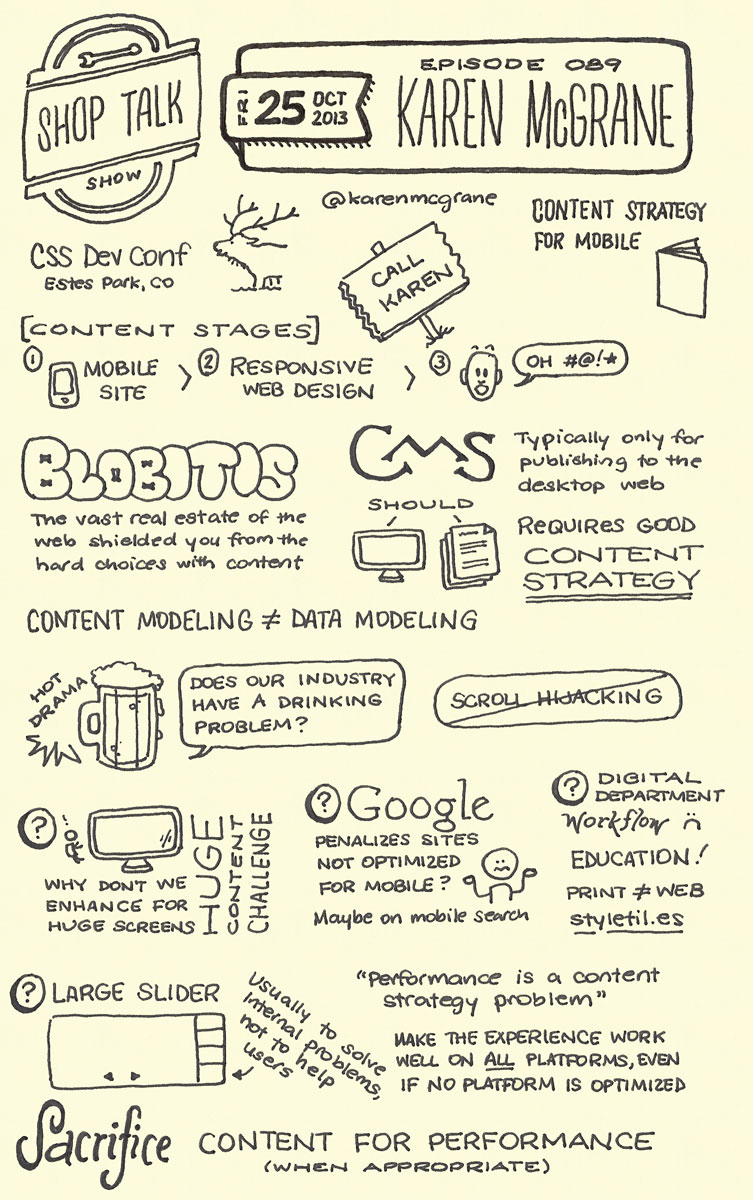 SHOP TALK
SHOW
FRI 25 OCT
2013
EPISODE 089
KAREN McGRANE
@karenmcgrane
CSS Dev Conf
Estes Park, CO
CALL
KAREN
CONTENT STRATEGY
FOR MOBILE
[CONTENT STAGES]
1 MOBILE
SITE
> 2 RESPONSIVE
WEB DESIGN
> 3
OH #@!*
BLOBITIS
The vast real estate of the
web shielded you from the
hard choices with content
CMS
SHOULD
Typically only for
publishing to the
desktop web
REQUIRES GOOD
CONTENT
STRATEGY
CONTENT MODELING ≠ DATA MODELING
HOT
DRAMA
DOES OUR INDUSTRY
HAVE A DRINKING
PROBLEM?
SCROLL HIJACKING
?
WHY DON'T WE
ENHANCE FOR
HUGE SCREENS
HUGE
CONTENT
CHALLENGE
? Google
PENALIZES SITES
NOT OPTIMIZED
FOR MOBILE?
Maybe on mobile search
? DIGITAL
DEPARTMENT
Workflow
EDUCATION!
PRINT ≠ WEB
styletil.es
? LARGE SLIDER
Usually to solve
internal problems,
not to help
users
"Performance is a content
strategy problem"
MAKE THE EXPERIENCE WORK
WELL ON ALL PLATFORMS, EVEN
IF NO PLATFORM IS OPTIMIZED
Sacrifice CONTENT FOR PERFORMANCE
(WHEN APPROPRIATE)